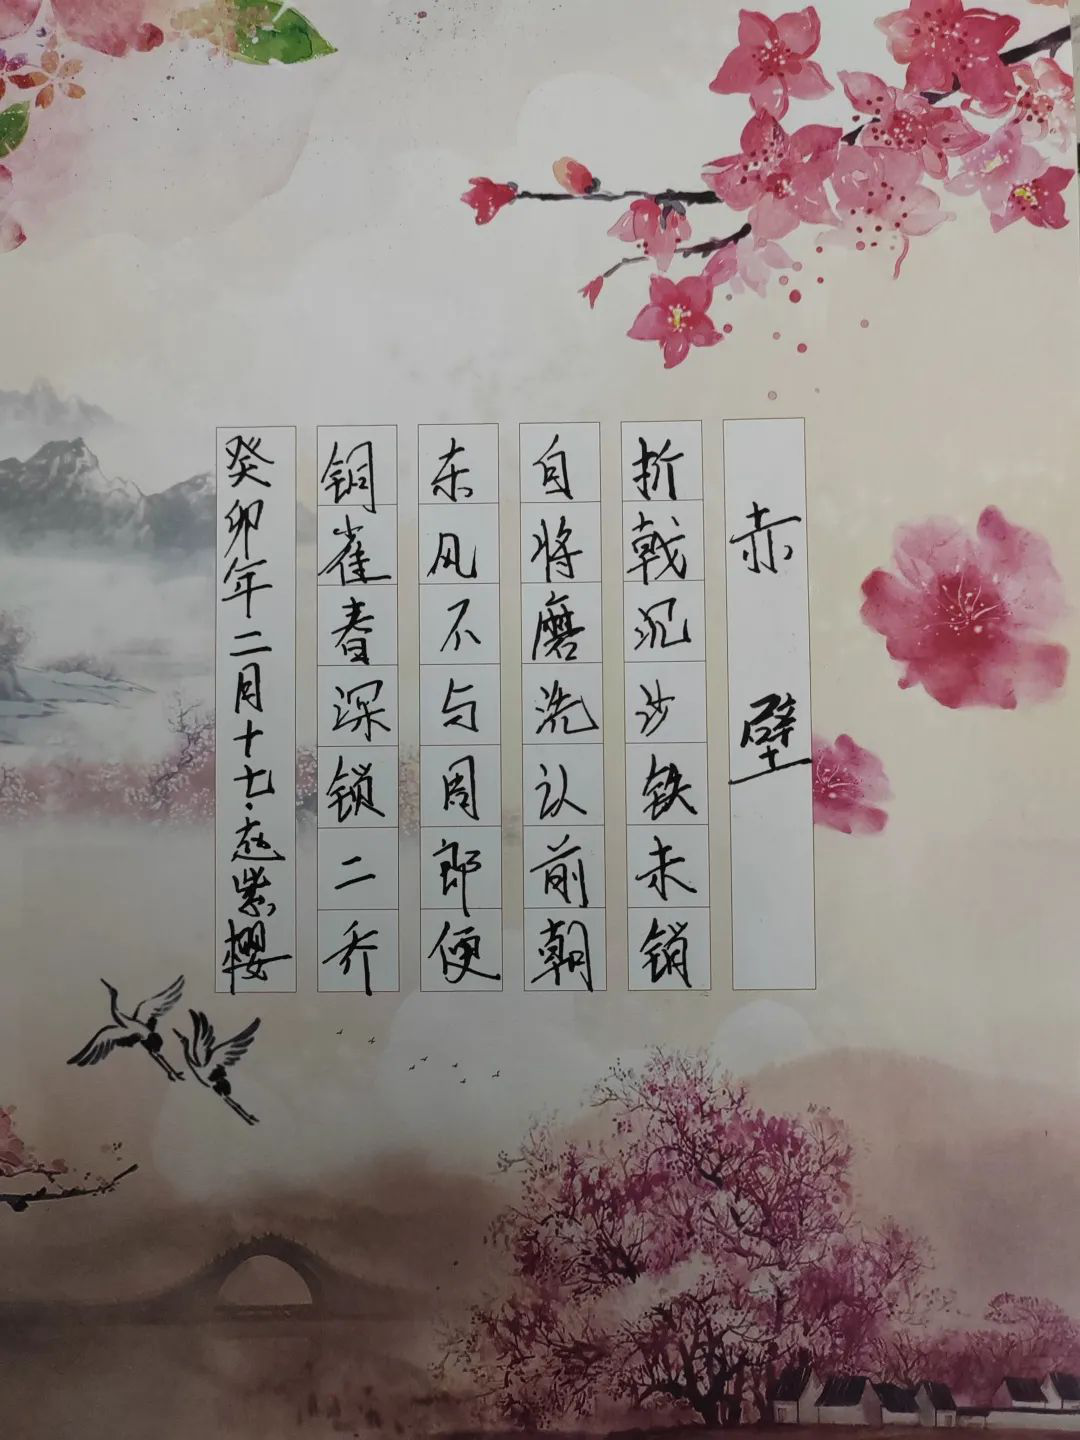 赤壁
折戟沉沙铁未销
自将磨洗认前朝
东风不与周郎便
铜雀春深锁二乔
癸卯年二月十七·赵紫樱